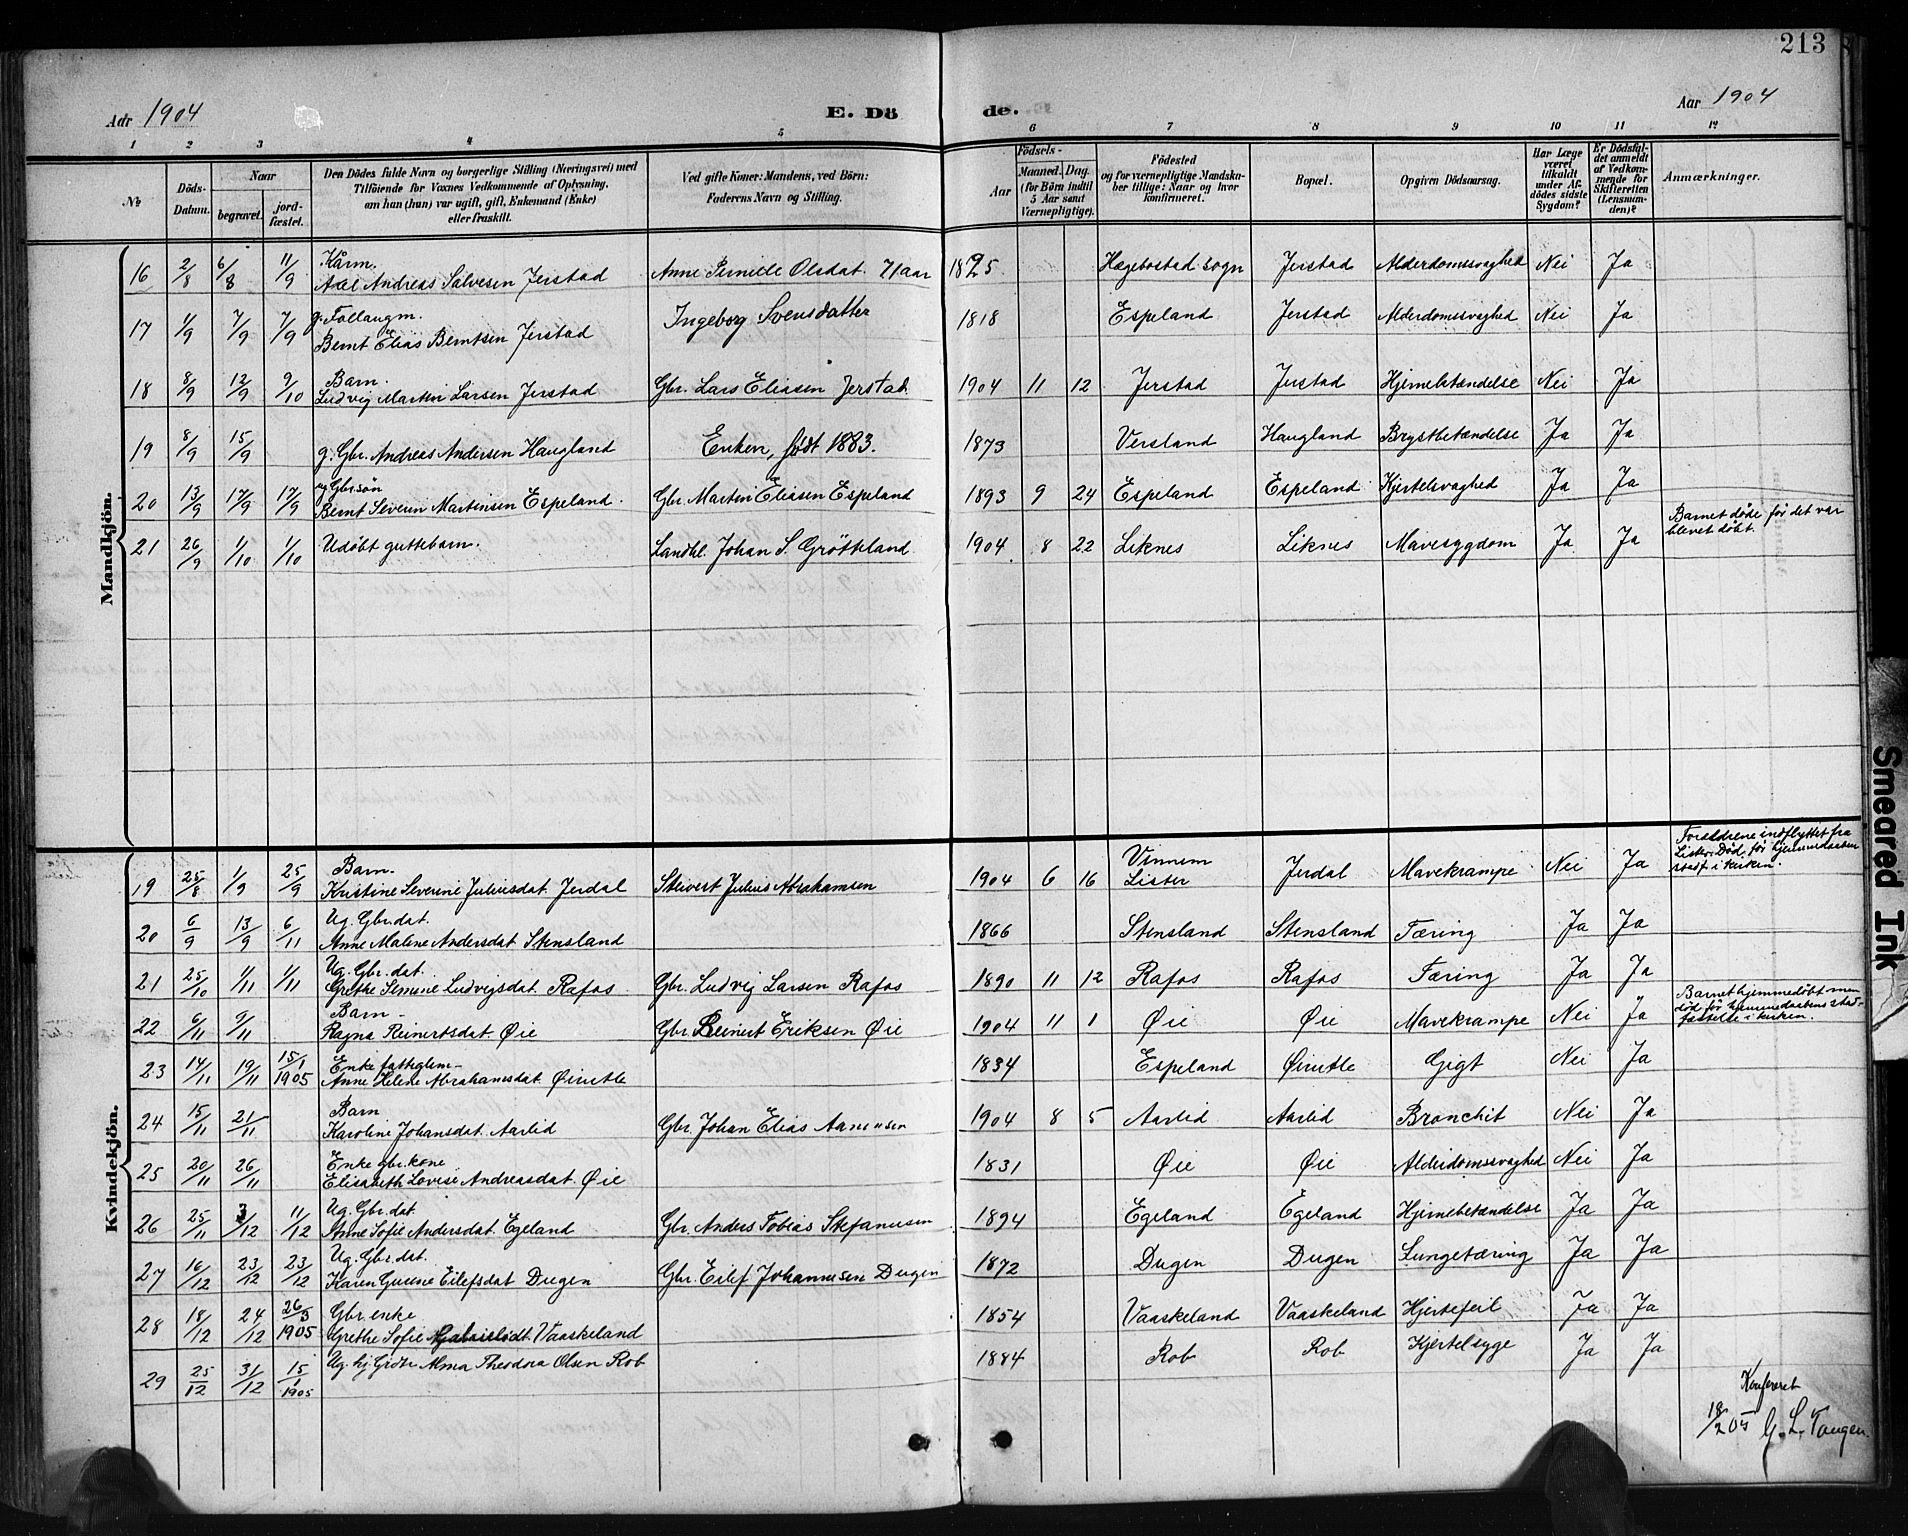 213
Aar 1904
E. Dö
de.
Aar 1904
1 2 3 4 5 6 7 8 9 10 11 12
№
Döds-Datum.
Naar
begravet.
jord-fæstet.
Den Dödes fulde Navn og borgerlige Stilling (Næringsvei) med
Tilföiende for Voxnes Vedkommende af Oplysning,
om han (hun) var ugift, gift, Enkemand (Enke)
eller fraskilt.
Ved gifte Koner: Mandens, ved Börn:
Faderens Navn og Stilling.
Födsels-
Aar
Maaned. Dag.
(for Börn indtil
5 Aar samt
Værnepligtige).
Födested
og for værnepligtige Mandska-
ber tillige: Naar og hvor
konfirmeret.
Bopæl.
Opgiven Dödsaarsag.
Har Læge
været
tilkaldt
under Af-
dödes sidste
Sygdom?
Er Dödsfal-
det anmeldt
af Vedkom-
mende for
Skifteretten
(Lensman-
den)?
Anmærkninger.
Mandkjön.
16 2/8 6/8 11/9 Kårm.
Axel Andreas Salvesen Jerstad Anne Pernille Olsdat. 71 aar 1825 Hægebostad sogn Jerstad Alderdomssvaghed Nei Ja
17 1/9 7/9 7/9 g. Føllaugm.
Bernt Elias Berntsen Jerstad Ingeborg Svensdatter 1818 Espeland Jerstad Alderdomssvaghed Nei Ja
18 8/9 12/9 9/10 Barn.
Ludvig Martin Larsen Jerstad Gbr. Lars Eliasen Jerstad 1904 11 12 Jerstad Jerstad Hjernebetændelse Nei Ja
19 8/9 15/9 g. Gbr. Andreas Andersen Haugland Enken, født 1883. 1873 Versland Haugland Brystbetændelse Ja Ja
20 13/9 17/9 17/9 ug Gbr.søn
Bernt Severin Martinsen Espeland. Gbr. Martin Eliasen Espeland 1893 9 24 Espeland Espeland Kjertelsvaghed Ja Ja
21 26/9 1/10 1/10 Udøbt guttebarn. Landhl. Johan S. Grøtteland 1904 8 22 Liknes Liknes Mavesygdom Ja Ja Barnet døde før det var
blevet døbt.
Kvindekjön.
19 25/8 1/9 25/9 Barn.
Kristine Severine Juliusdat. Jerdal Steivert Julius Abrahamsen 1904 6 16 Vinnem
Lister Jerdal Mavekrampe Nei Ja Forældrene indflyttet fra
Lister. Død før hjemmedaaben
stadf. i kirken.
20 6/9 13/9 6/11 Ug. Gbr.dat.
Anne Maline Andersdat Stensland 1866 Stensland Stensland Tæring Ja Ja
21 25/10 1/11 1/11 Ug. Gbr.dat.
Grethe Simine Ludvigsdat. Rafos Gbr. Ludvig Larsen Rafos 1890 11 12 Rafos Rafos Tæring Ja Ja
22 6/11 9/11 Barn
Ragna Reinertsdat. Øie Gbr. Reinert Eriksen Øie 1904 11 1 Øie Øie Mavekrampe Nei Ja Barnet hjemmedøbt men
død før hjemmedaabens stad-
fæstelse i kirken.
23 14/11 19/11 15/1 1905 Enke fattiglem
Anne Helene Abrahamsdat. 1834 Espeland Gigt Nei Ja
24 15/11 21/11 Barn
Karoline Johansdat. Aarlid Gbr. Johan Elias 1904 8 5 Aarlid Aarlid Bronchit Nei Ja
25 20/11 26/11 Enke gbr.kone
Elisabeth Lovise Andreasdat. Øie 1831 Øie Øie Alderdomssvaghed Nei Ja
26 25/11 3/12 11/12 Ug. Gbr.dat.
Anne Sofie Andersdat. Egeland Gbr. Anders Tobias Stefanusen 1894 Egeland Egeland Hjernebetændelse Ja Ja
27 16/12 23/12 23/12 Ug. Gbr.dat.
Karen Gurine Eilefsdat Dugen Gbr. Eilef Johannesen Dugen 1872 Dugen Dugen Lungetæring Ja Ja
28 18/12 24/12 26/3 1905 Gbr.enke
Grethe Sofie Vaaskeland 1854 Vaaskeland Vaaskeland Hjertefeil Ja Ja
29 25/12 31/12 15/1 1905 Ug. Alma Theodora Olsen Rob 1884 Rob Rob Kjertelsyge Ja Ja
Konfereret
18/2 05 G. L. Tangen.
Smeared Ink